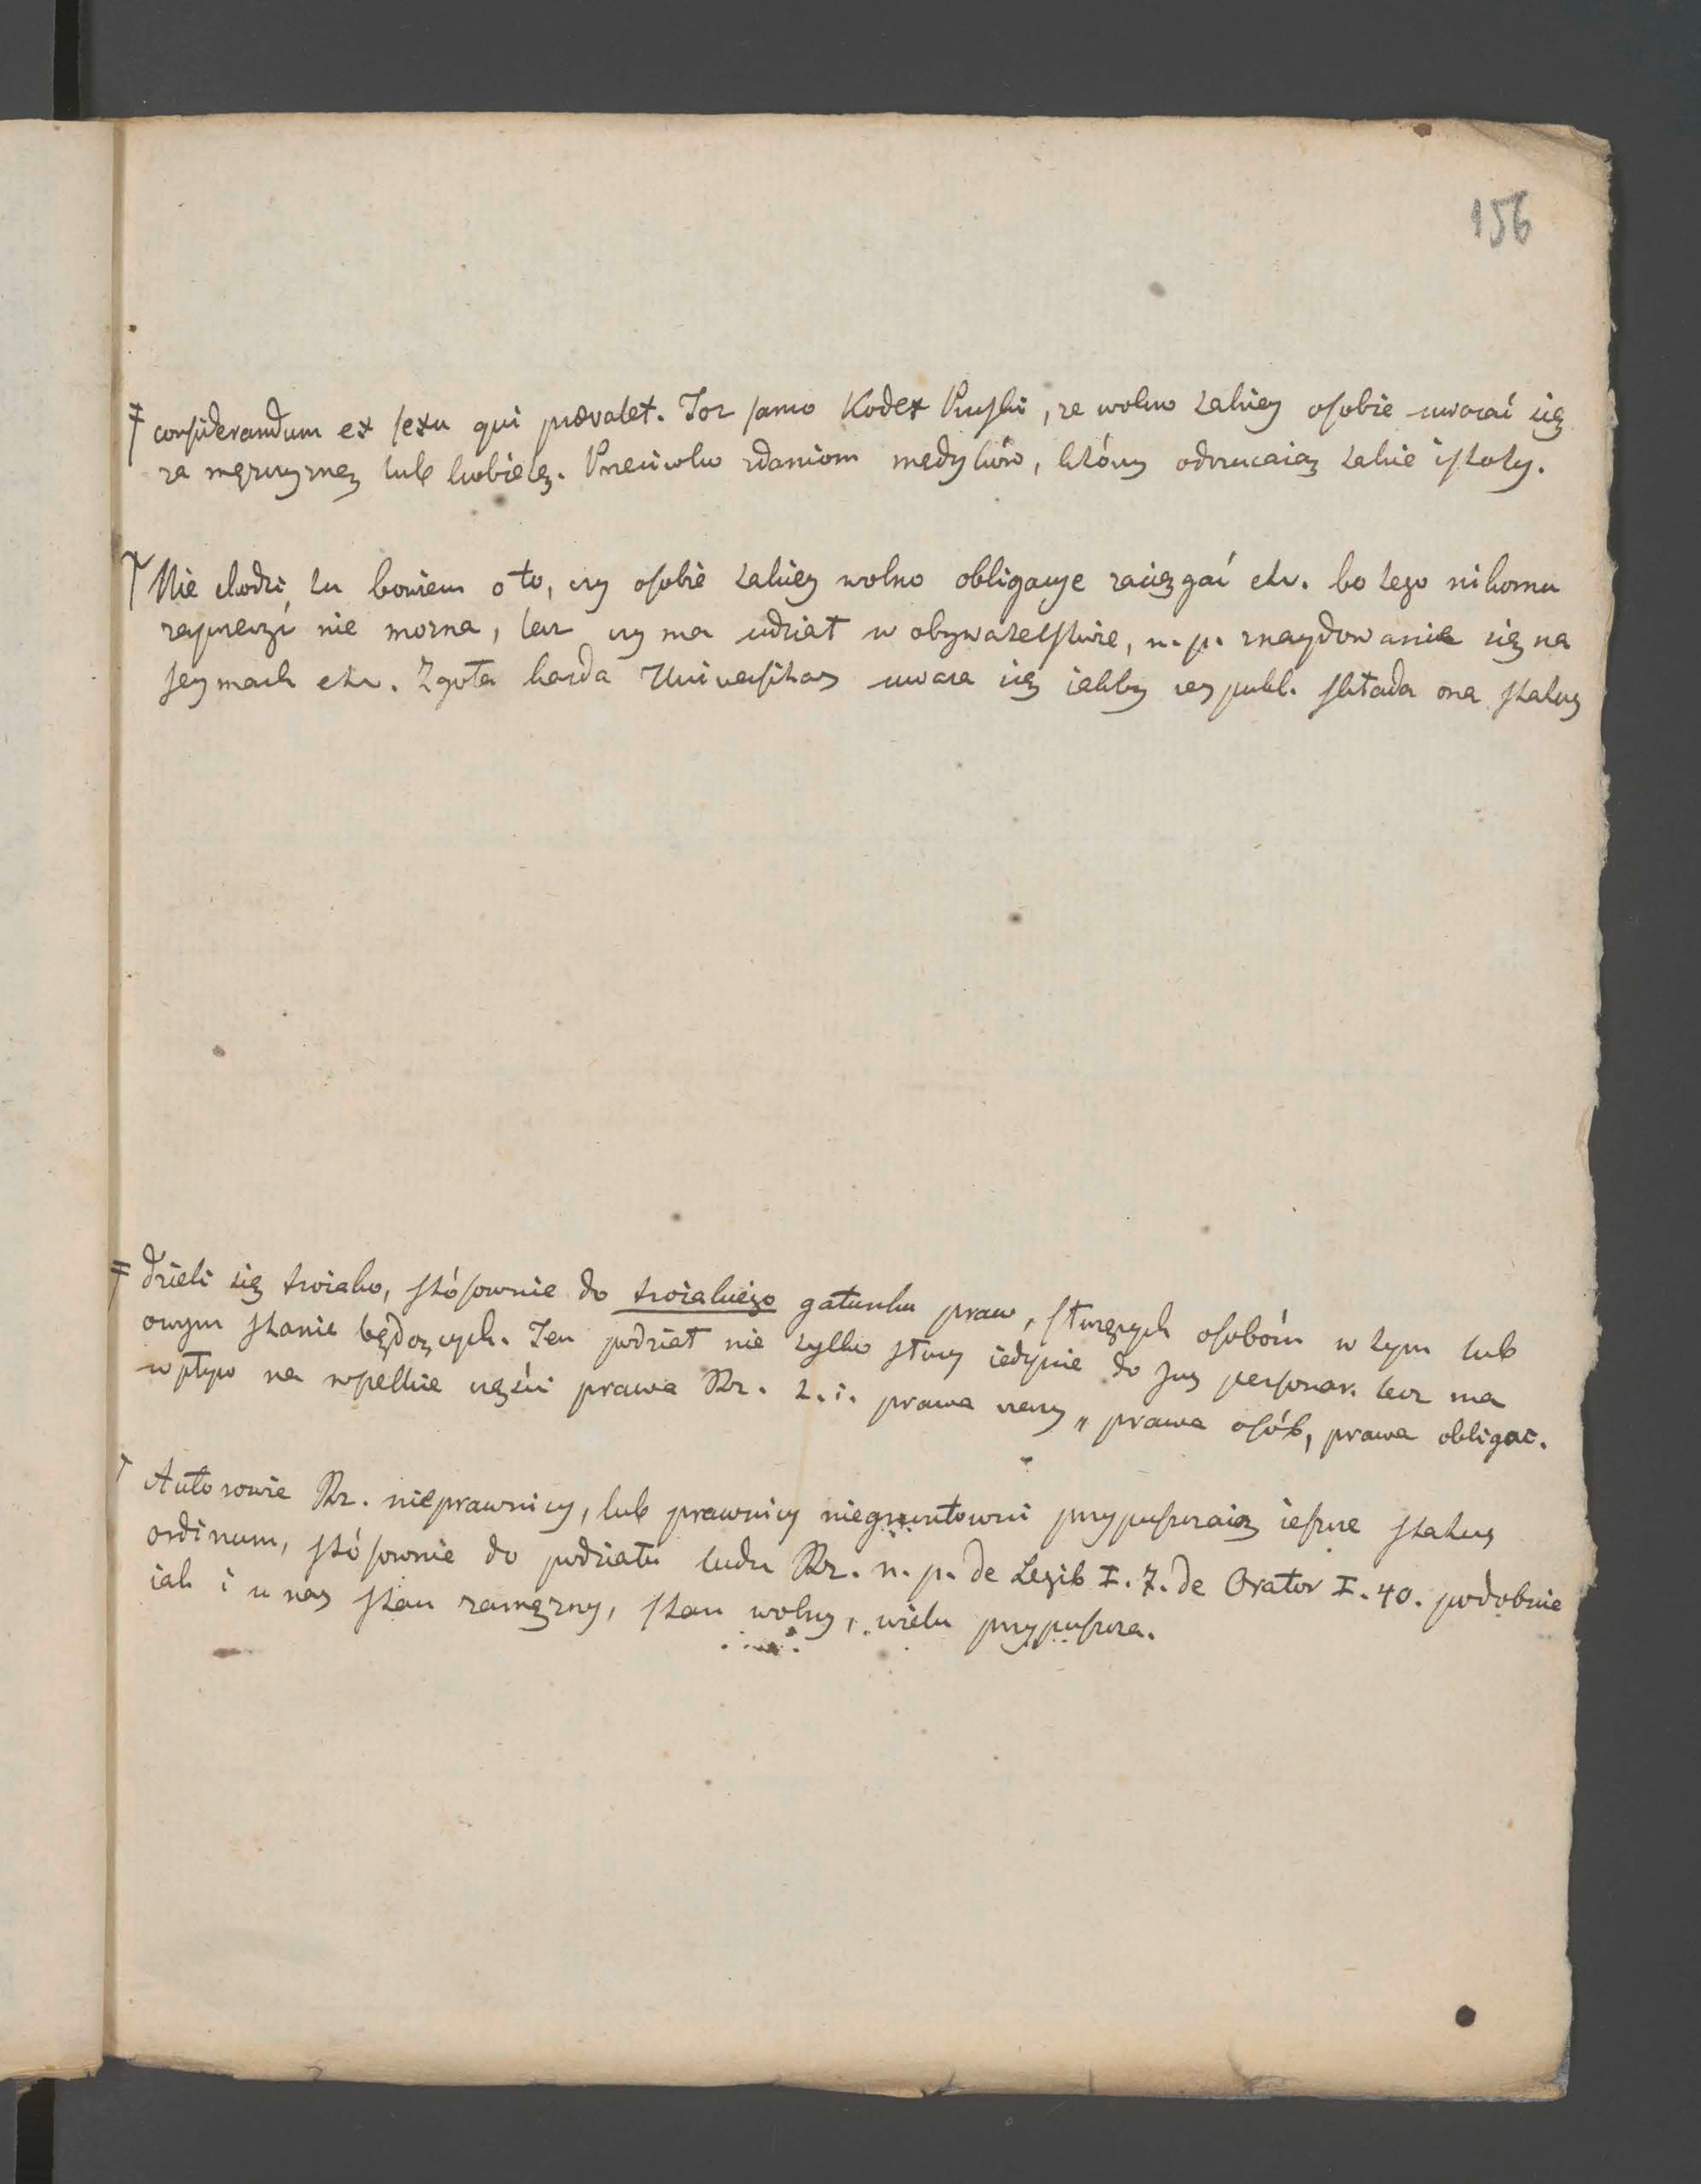 156
‡ considerandum ex sexu qui praevalet. Toż samo Kodex Pruski, że wolno takiey osobie uważać się
za mężczyznę lub kobietę. Przeciwko zdaniom medyków, którzy odrzucaią takie istoty.
† Nie chodzi tu bowiem o to, czy osobie takiey wolno obligacye zaciągać etc. bo tego nikomu
zaprzeczyć nie można, lecz czy ma udział w obywatelstwie, n. p. znaydowanie się na
seymach etc. Zgoła każda Universitas uważa się iakby res publ. składa ona status
‡ dzieli się troiako, stósownie do troiakiego gatunku praw, służących osobóm w tym lub
owym stanie będących. Ten podział nie tylko służy iedynie do jus personar. lecz ma
wpływ na wszelkie części prawa Rz. t. i. prawa rzeczy, prawa osób, prawa obligac.
† Autorowie Rz. nieprawnicy, lub prawnicy niegruntowni przypuszczaią ieszcze status
ordinum, stósownie do podziału ludu Rz. n. p. de Legib I. 7. de Orator I. 40. podobnie
iak i u nas stan zamężny, stan wolny, wielu przypuszcza.